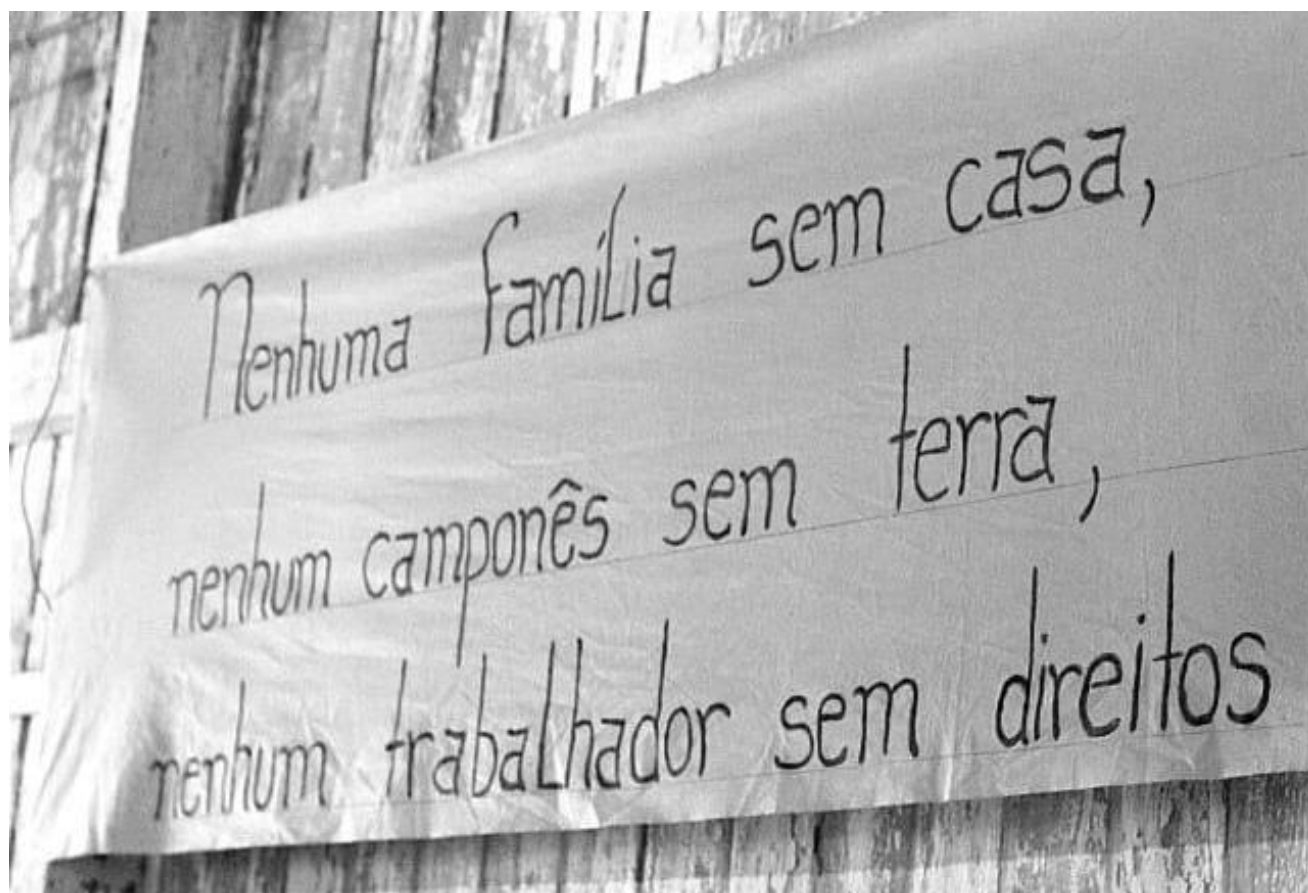 Nenhuma família sem casa,
nenhum camponês sem terra,
nenhum trabalhador sem direitos